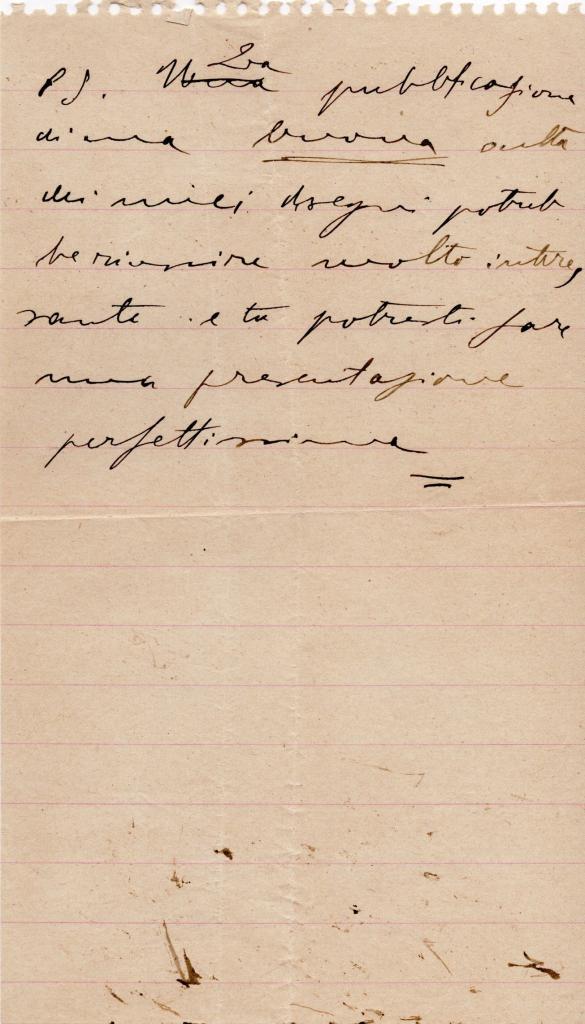 P.S. Una La pubblicazione
di una buona scelta
dei miei disegni potreb
be riuscire molto interes
sante e tu potresti fare
una presentazione
perfettissima